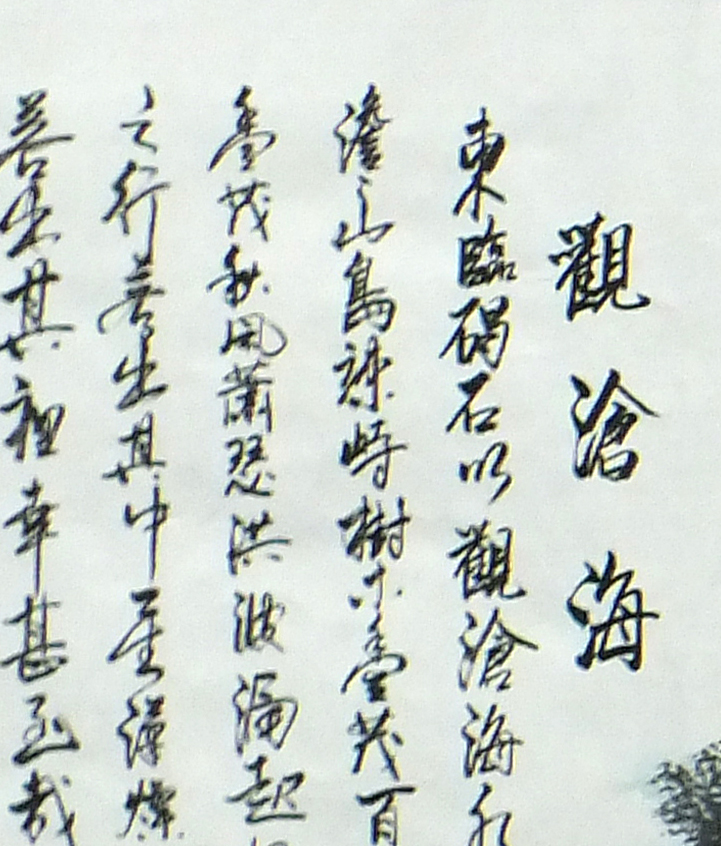 觀滄海
東臨碣石以觀滄海水
澹々山島竦峙樹木豐茂百
豐茂秋風蕭瑟洪波涌起
之行若出其中星漢燦
若出其裡幸甚至哉